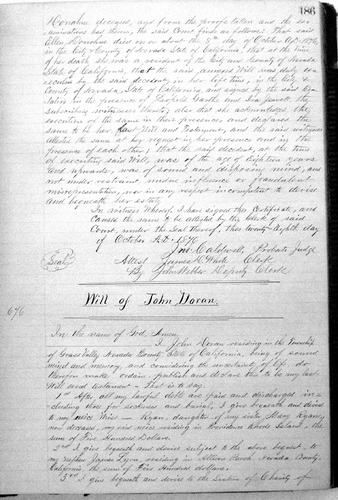 186
Donahue deceased, and from the proofs taken and the ex-
aminations had therein, the said Court finds as follows: That said
Ellen Donahue died on or about the 5th day of October A.D. 1876,
in the City County of Nevada State of California, that at the time
of her death she was a resident of the City and County of Nevada
State of California, that the said annexed Will was duly ex-
ecuted by the said decedent in her life time, in the City
County of Nevada, State of California, and signed by the said
in the presence of and
subscribing witnesses thereto; also that she acknowledged the
execution of the same in their presence, and declared the
same to be her last Will and Testament, and the said witnesses
attested the same at her request in her presence, and in the
presence of each other; that the said decedent, at the time
of executing said Will, was of the age of eighteen years
and upwards, was of sound and disposing mind, and
not under restraint, undue influence or fraudulent
misrepresentation, nor in any respect incompetent to devise
and bequeath her estate.
In witness Whereof, I have signed this Certificate, and
Caused the same to be attested by the Clerk of said
Court, under the Seal thereof, this twenty eighth day
of October A.D. 1876.
Jno. Caldwell, Probate Judge
(Seal) Attest James D. White Clerk
By John Webber Deputy Clerk
Will of John Horan.
676
In the name of God Amen.
I John Horan residing in the Township
of Grass Valley Nevada County, State of California, being of sound
mind and memory, and considering the uncertainty of life do
therefore make ordain, publish and declare this to be my last
Will and testament - That is to say.
1st After all my lawful debts are paid and discharged in-
cluding those for sickness and burial, I give bequeath and devise
to my niece Miss Ryan, daughter of my sister Mary Ryan,
now deceased, my said niece residing in Providence Rhode Island, the
sum of Five Hundred Dollars.
2nd I give bequeath and devise subject to the above bequest, to
my nephew James Lyon, residing in Nevada County,
California, the sum of Five Hundred dollars.
3rd I give bequeath and devise to the Sisters of Charity of